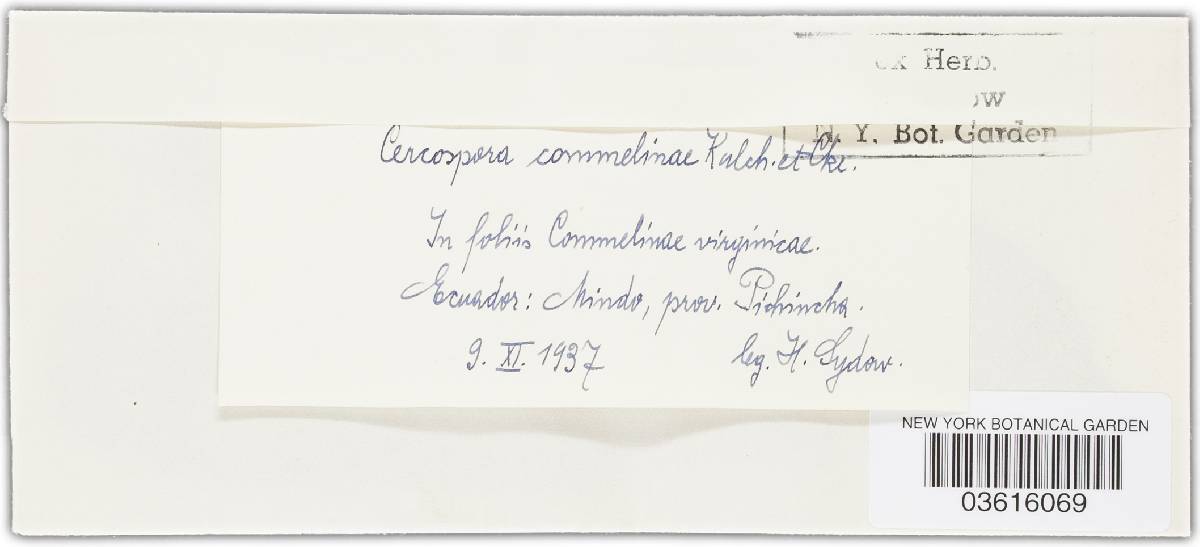 Herb.
N. Y. Bot. Garden
Cercospora commelinae Kalch. et Cke.
In foliis Commelinae virginicae.
Ecuador: Mindo, prov. Pichincha.
9. XI. 1937 leg. H. Sydow.
NEW YORK BOTANICAL GARDEN
03616069